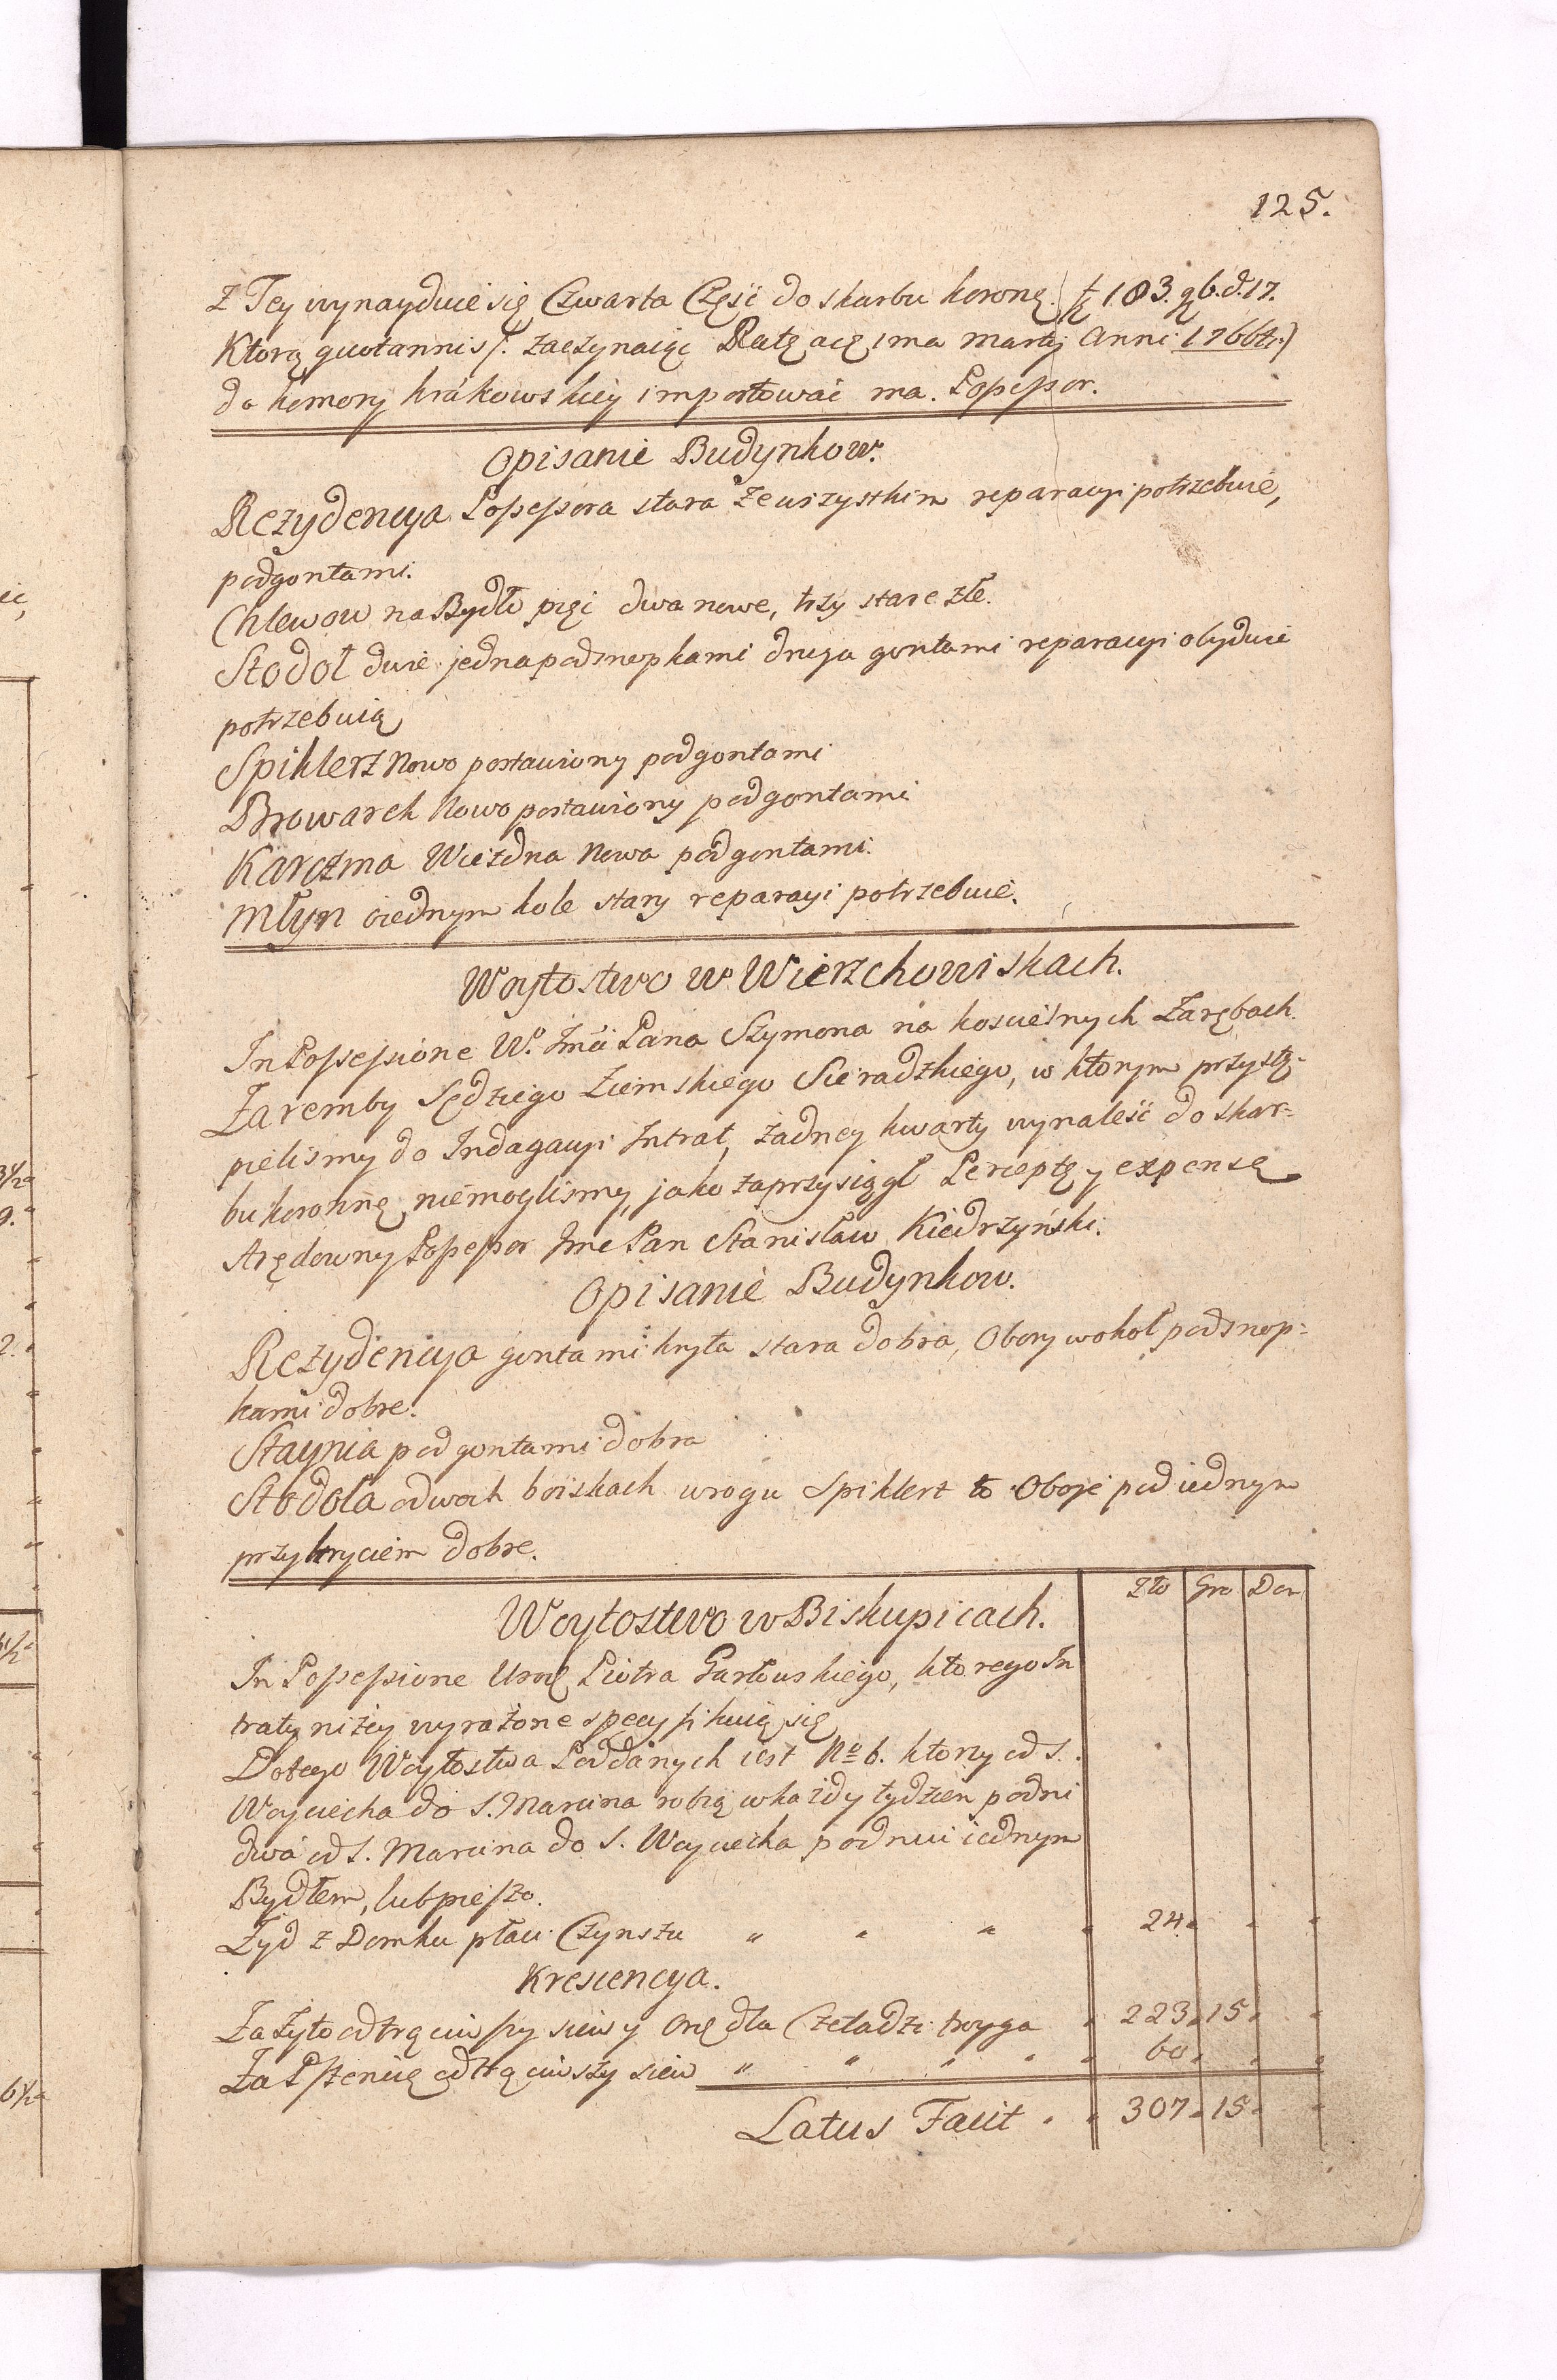 125.
Z Tey wynayduie się Czwarta Część do skarbu koronę. fl 183. g 6. d. 17.
Ktorą quotannis /: zaczynaiąc Ratę a 1ma Martij Anni 1766ti:/
do komory krakowskiey importować ma. Possessor.
Opisanie Budynkow.
Rezydencya Possessora stara ze wszystkim reparacyi potrzebuie,
pod gontami.
Chlewow na Bydło pięć dwa nowe, trzy stare złe.
Stodoł dwie jedna pod snopkami druga gontami reparacyi obydwie
potrzebuią
Spiklerz Nowo postawiony pod gontami
Browarek Nowo postawiony pod gontami
Karczma Wiezdna Nowa pod gontami.
Młyn o iednym kole stary reparacyi potrzebuie.
Woytostwo w Wierzchowiskach.
In Possessione Wo. Jmci Pana Szymona na kościelnych Zarębach
Zaremby Sędziego Ziemskiego Sieradzkiego, w ktorym przystę-
pieliśmy do Indagacyi Intrat, żadney kwarty wynaleść do skar=
bu koronnę niemogliśmy, jako zaprzysiągł Perceptę y expensę
Arędowny Possessor Jmc Pan Stanisław Kiedrzyński.
Opisanie Budynkow.
Rezydencya gontami kryta stara dobra, Obory wokoł pod snop=
kami dobre.
Staynia pod gontami dobra
Stodoła o dwoch boiskach w rogu Spiklerz to Oboje pod iednym
przykryciem dobre.
Zło Gro Den
Woytostwo w Biskupicach.
In Possessione Urodę Piotra Garłowskiego, ktorego In
traty niżey wyrażone specyfikuią się
Do tego Woytostwa Poddanych iest No 6. ktorzy od S.
Woyciecha do S. Marcina robią w każdy tydzien po dni
dwa od S. Marcina do S. Woyciecha po dniu iednym
Bydłem, lub pieszo.
Żyd z Domku płaci Czynszu " " " " 24 " "
Krescencya.
Za Żyto odtrąciwszy siew y Ordę dla Czeladzi troyga " 223 " 15 "
Za Pszenicę odtrąciwszy siew " " " " " 60 " "
Latus Facit " " 307 " 15 "